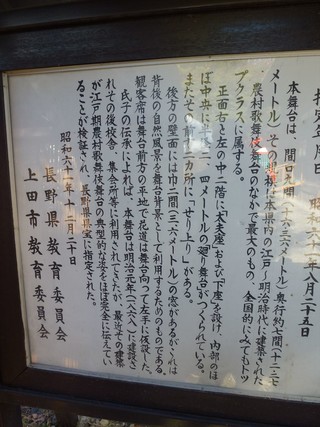 指定年月日　昭和　　年八月二十五日
本舞台は、間口九間(十六・三六メートル)奥行約七間(十二・七二
メートル)その規模は本県内の江戸〜明治時代に建築された
農村歌舞伎舞台のなかで最大のもの、全国的にみてもトッ
プクラスに属する。
正面右と左の中二階に「太夫座」および下座を設け、内部のほ
ぼ中央に直径二・四メートルの廻り舞台がつくられている。
またその前
カ所に「せり上り」がある。
後方の壁面には巾二間(三・六メートル)の窓があるがこれは
背後の自然風景を舞台背景として利用するためのものである。
観客席は舞台前方の平地で花道は舞台向って左手に仮設した。
氏子の伝承によれば、本舞台は明治元年(一八六八)に建設さ
れその後校舎、集会所等に利用されてきたが、最近その建築
が江戸期農村歌舞伎舞台の典型的な姿をほぼ完全に伝えてい
ることが検証され、長野県県宝に指定された。
昭和六十二年十二月二十日
長野県教育委員会
上田市教育委員会